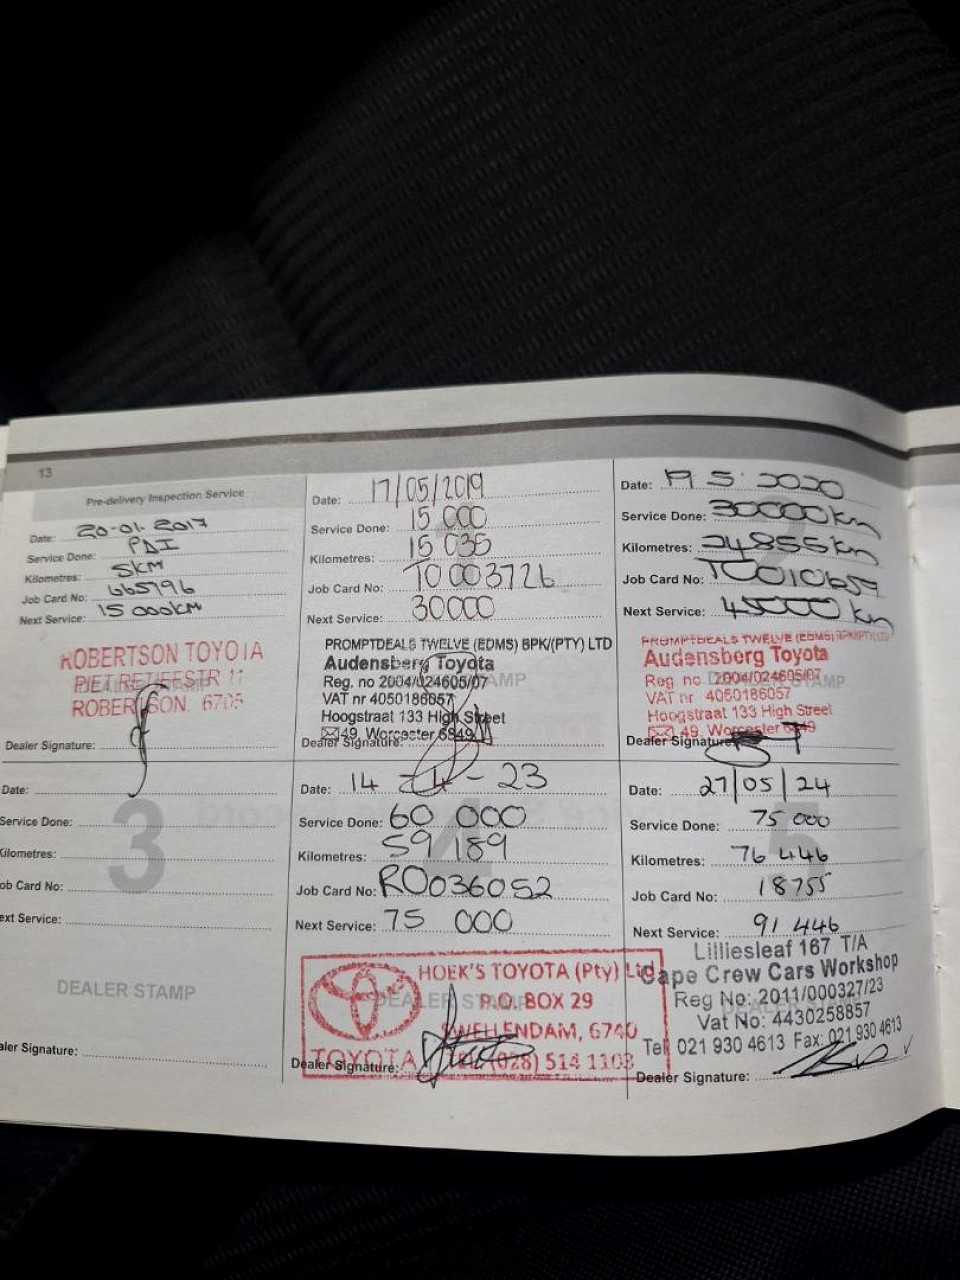 13
Pre-delivery Inspection Service
Date: 20-01-2017
Service Done: PDI
Kilometres: 5KM
Job Card No: 665796
Next Service: 15 000KM
ROBERTSON TOYOTA
PIET RETIEFSTR 11
ROBERTSON 6705
Dealer Signature:
Date: 17/05/2019
Service Done: 15 000
Kilometres: 15 035
Job Card No: TO003726
Next Service: 30000
PROMPTDEALS TWELVE (EDMS) BPK/(PTY) LTD
Audensberg Toyota
Reg. no 2004/024605/07
VAT nr 4050186057
Hoogstraat 133 High Street
49, Worcester 6849
Dealer Signature:
Date: 19 5 2020
Service Done: 30000km
Kilometres: 24855km
Job Card No: TO010659
Next Service: 45000 km
PROMPTDEALS TWELVE (EDMS) BPK/(PTY) LTD
Audensberg Toyota
Reg. no. 2004/024605/07
VAT nr 4050186057
Hoogstraat 133 High Street
49, Worcester 6849
Dealer Signature
3
Date:
Service Done:
Kilometres:
Job Card No:
Next Service:
DEALER STAMP
Dealer Signature:
4
Date: 14 - 4 - 23
Service Done: 60 000
Kilometres: 59 189
Job Card No: RO036052
Next Service: 75 000
HOEK'S TOYOTA (Pty) Ltd
P.O. BOX 29
SWELLENDAM, 6740
TOYOTA TEL (028) 514 1103
Dealer Signature:
5
Date: 27/05/24
Service Done: 75 000
Kilometres: 76 446
Job Card No: 18755
Next Service: 91 446
Lilliesleaf 167 T/A
Cape Crew Cars Workshop
Reg No: 2011/000327/23
Vat No: 4430258857
Tel: 021 930 4613 Fax: 021 930 4613
Dealer Signature: